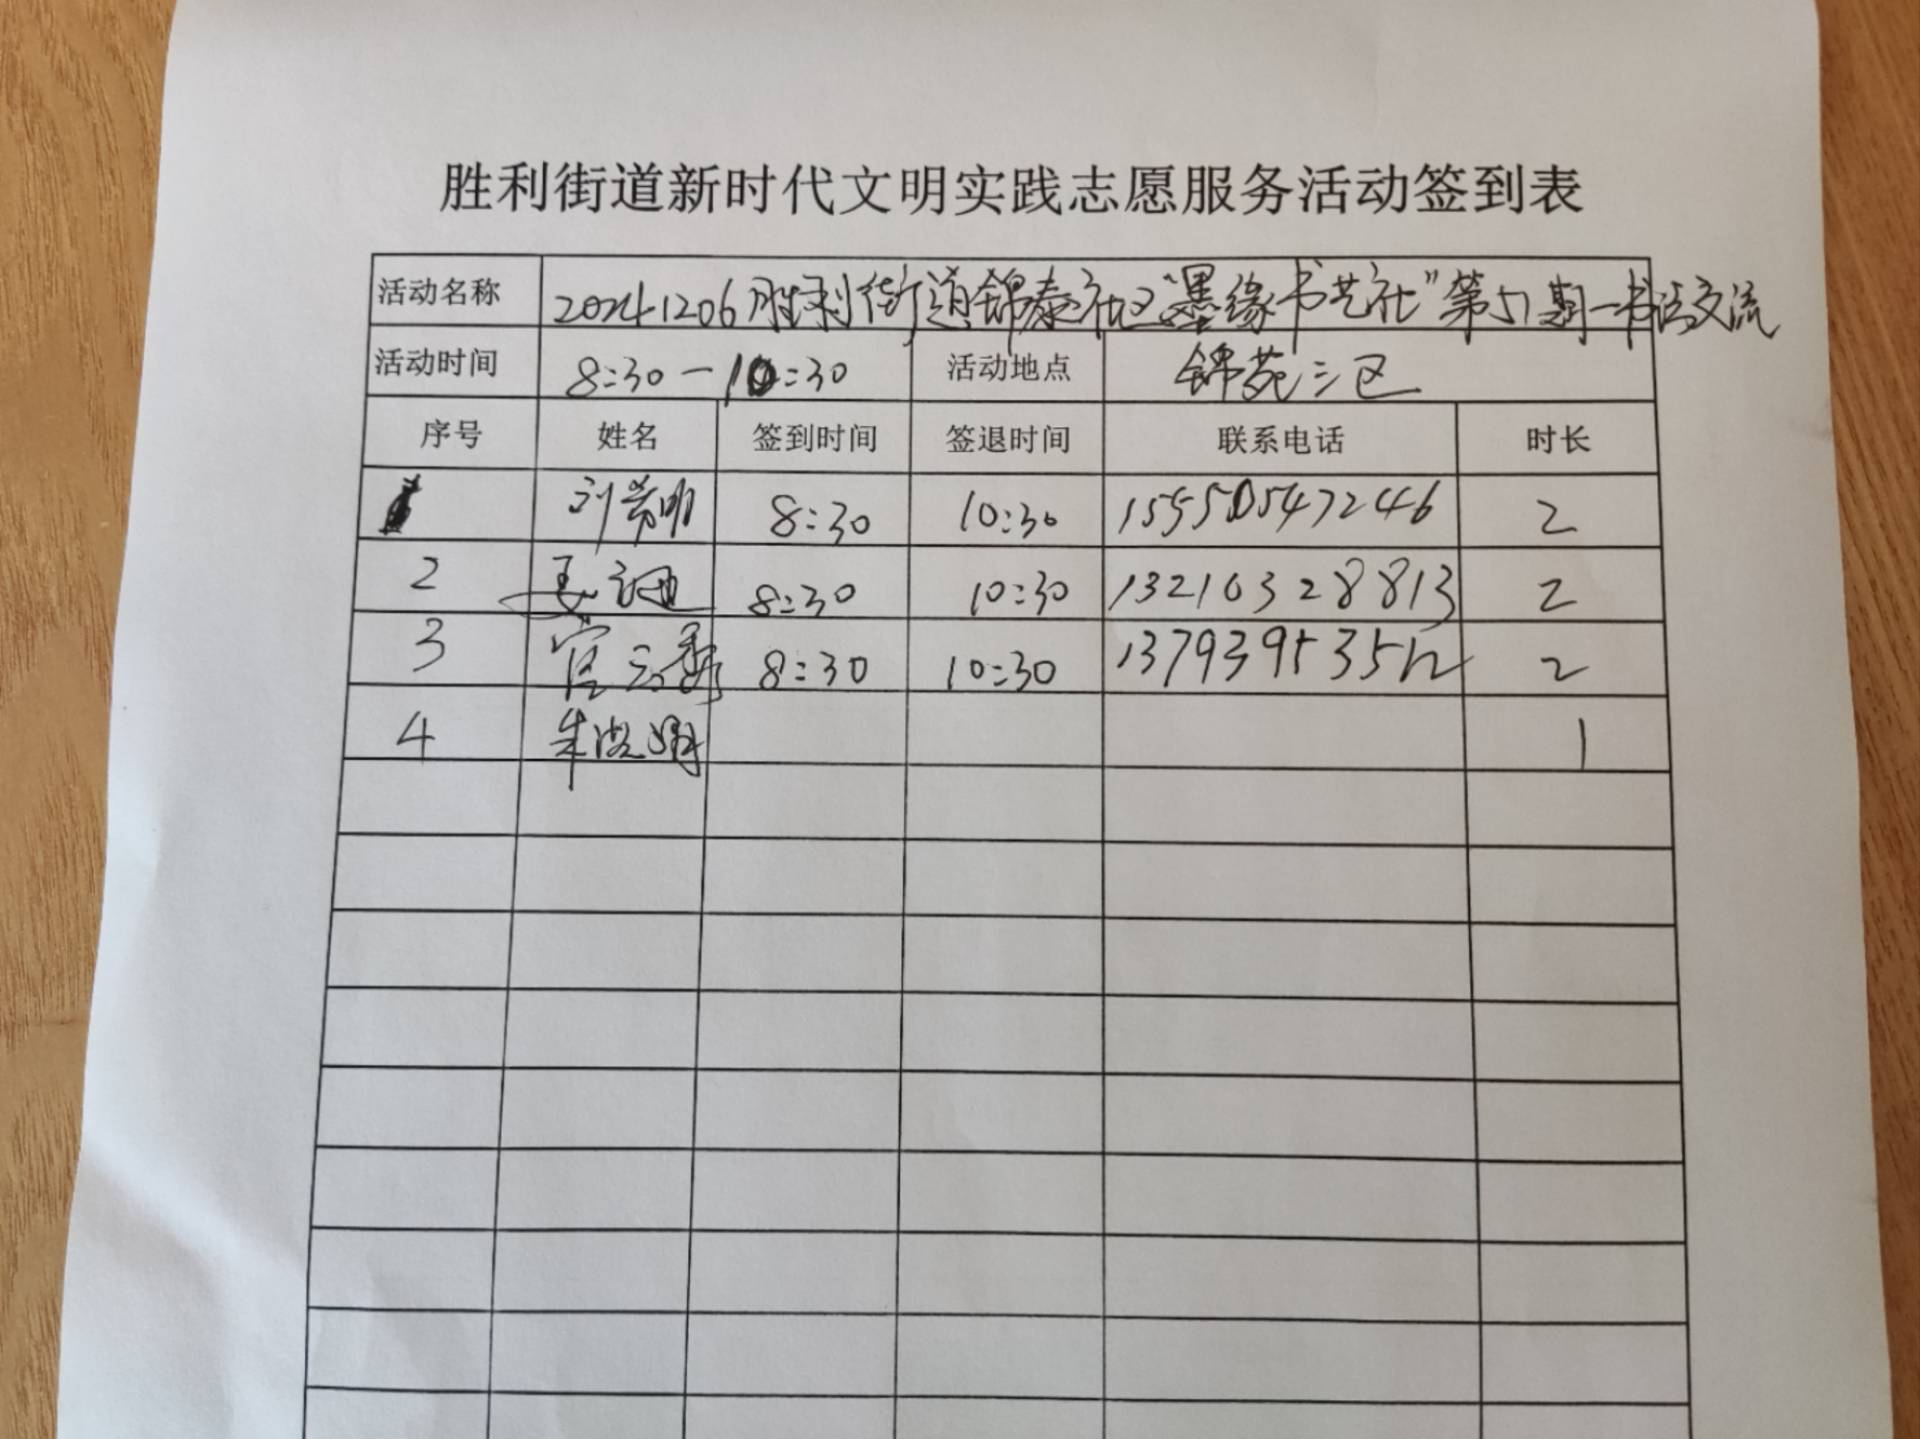 胜利街道新时代文明实践志愿服务活动签到表
活动名称 20241206胜利街道锦泰社区“墨缘书艺社”第51期—书法交流
活动时间 8:30—10:30 活动地点 锦苑三区
序号 姓名 签到时间 签退时间 联系电话 时长
1 刘 明 8:30 10:30 2
2 8:30 10:30 13210328813 2
3 8:30 10:30 2
4 朱 1